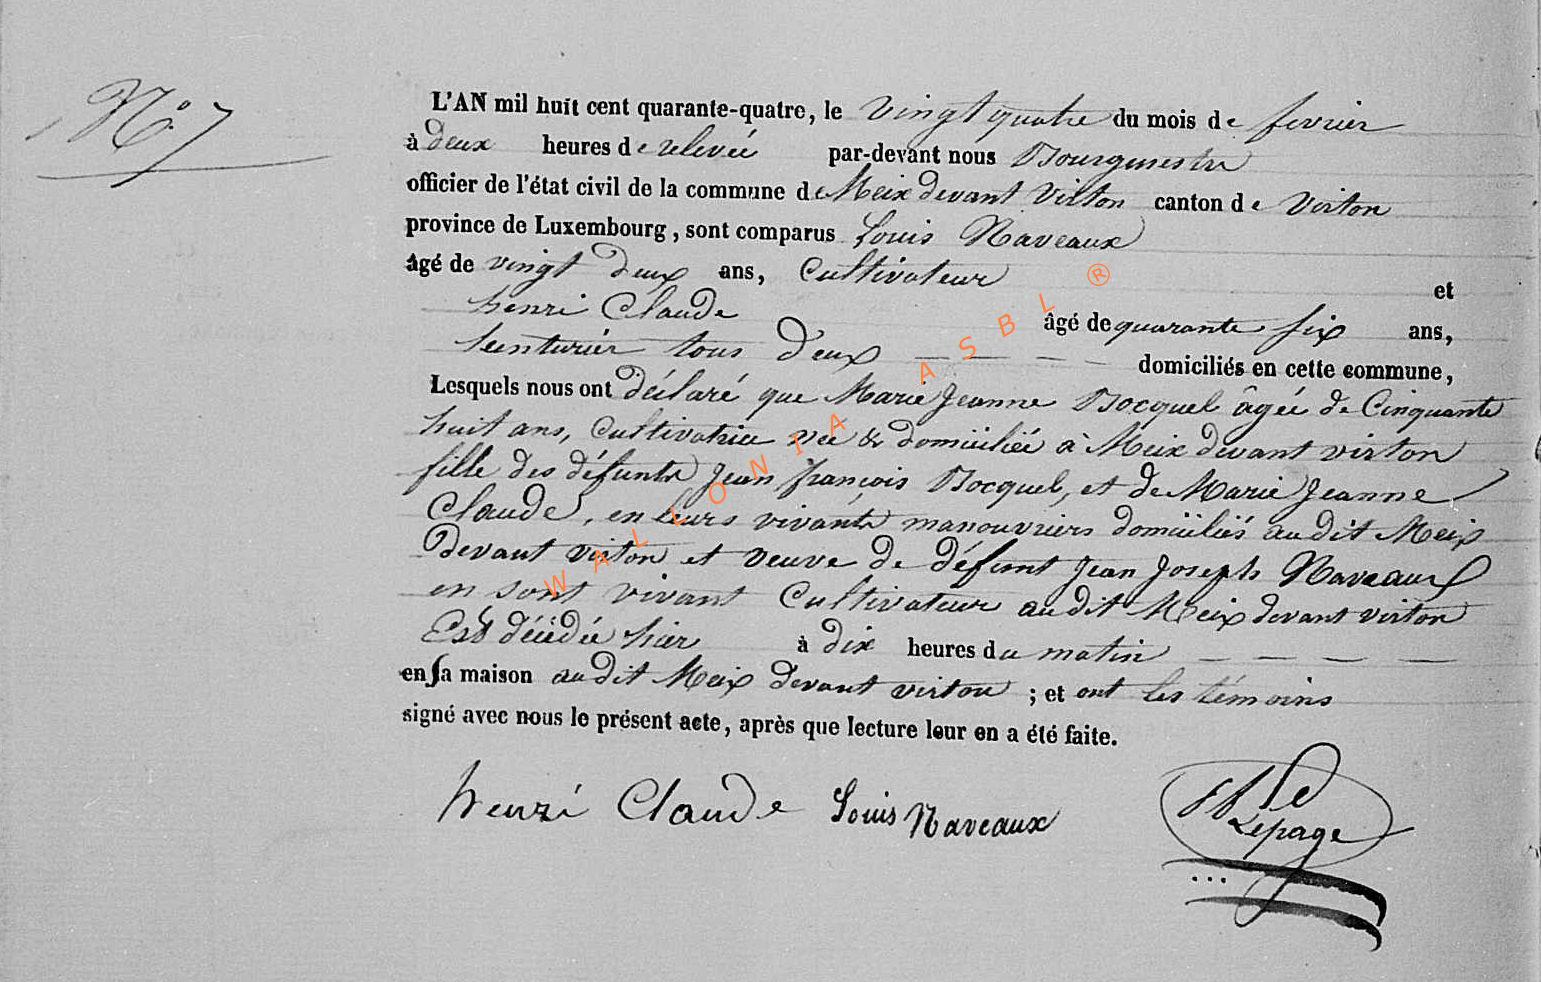 N.º 7
L'AN mil huit cent quarante-quatre, le vingt quatre du mois de fevrier
à deux heures de relevée par-devant nous Bourgmestre
officier de l'état civil de la commune de Meix devant Virton canton de Virton
province de Luxembourg, sont comparus Louis Naveaux
âgé de vingt deux ans, Cultivateur et
henri Claude âgé de quarante six ans,
teinturier tous deux — — — — domiciliés en cette commune,
Lesquels nous ont déclaré que Marie Jeanne Bocquel âgée de Cinquante
huit ans, Cultivatrice née & domiciliée à Meix devant virton
fille des défunts Jean françois Bocquel, et de Marie Jeanne
Claude, en leurs vivants manouvriers domiciliés audit Meix
devant virton et veuve de défunt Jean Joseph Naveaux
en sont vivant Cultivateur audit Meix devant virton
Est décédée hier à dix heures du matin — — — —
en sa maison audit Meix devant virton ; et ont les témoins
signé avec nous le présent acte, après que lecture leur en a été faite.
henri Claude Louis Naveaux
Lepage
WALLONIA ASBL ®